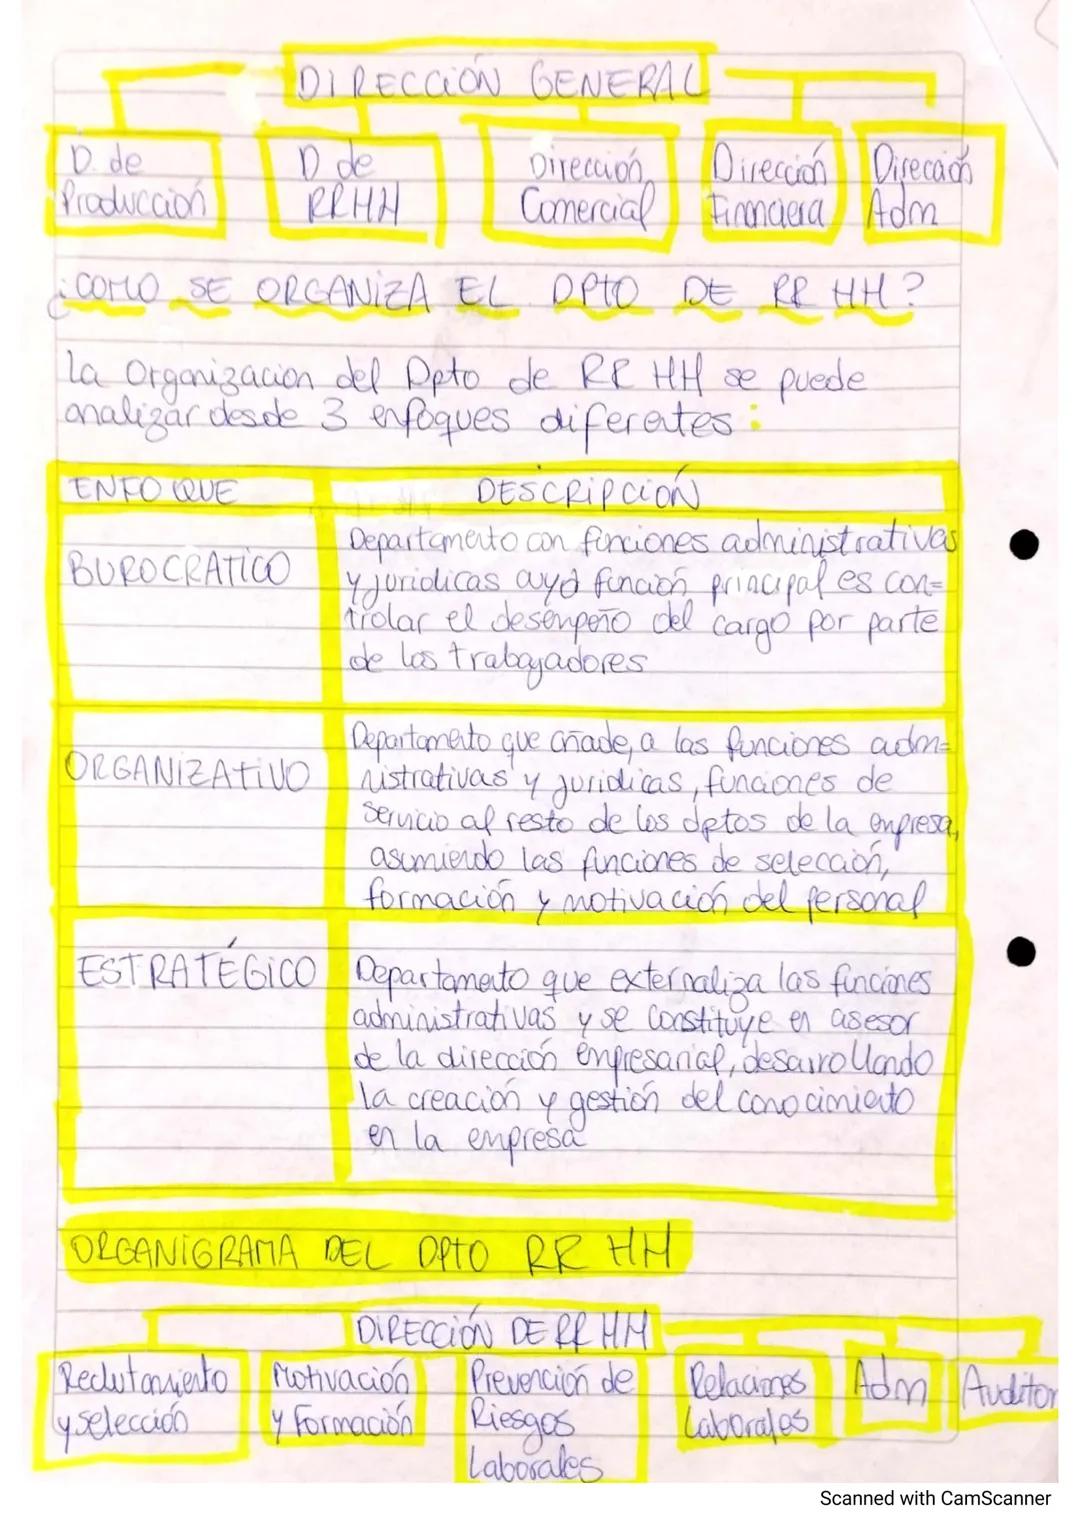 DIRECCIÓN GENERAL
D. de
Producción
D de
RRHH
Dirección
Comercial
Dirección
Financiera
Dirección
Adm
¿COMO SE ORGANIZA EL DPTO DE RR HH?
La Organizacion del Dpto de RR HH se puede
analizar desde 3 enfoques diferentes:
ENFOQUE
DESCRIPCIÓN
BUROCRATICO
Departamento con funciones administrativas
y juridicas cuya función principal es con=
trolar el desempeño del cargo por parte
de los trabajadores
ORGANIZATIVO
Departamento que añade, a las funciones adm=
nistrativas y juridicas, funciones de
servicio al resto de los dptos de la empresa,
asumiendo las funciones de selección,
formación y motivación del personal
ESTRATÉGICO
Departamento que externaliza las funciones
administrativas y se constituye en asesor
de la dirección empresarial, desarrollando
la creación y gestión del conocimiento
en la empresa
ORGANIGRAMA DEL DPTO RR HH
DIRECCIÓN DE RR HH
Reclutamiento
y selección
Motivación
y Formación
Prevención de
Riesgos
Laborales
Relaciones
Laborales
Adm
Auditor
Scanned with CamScanner